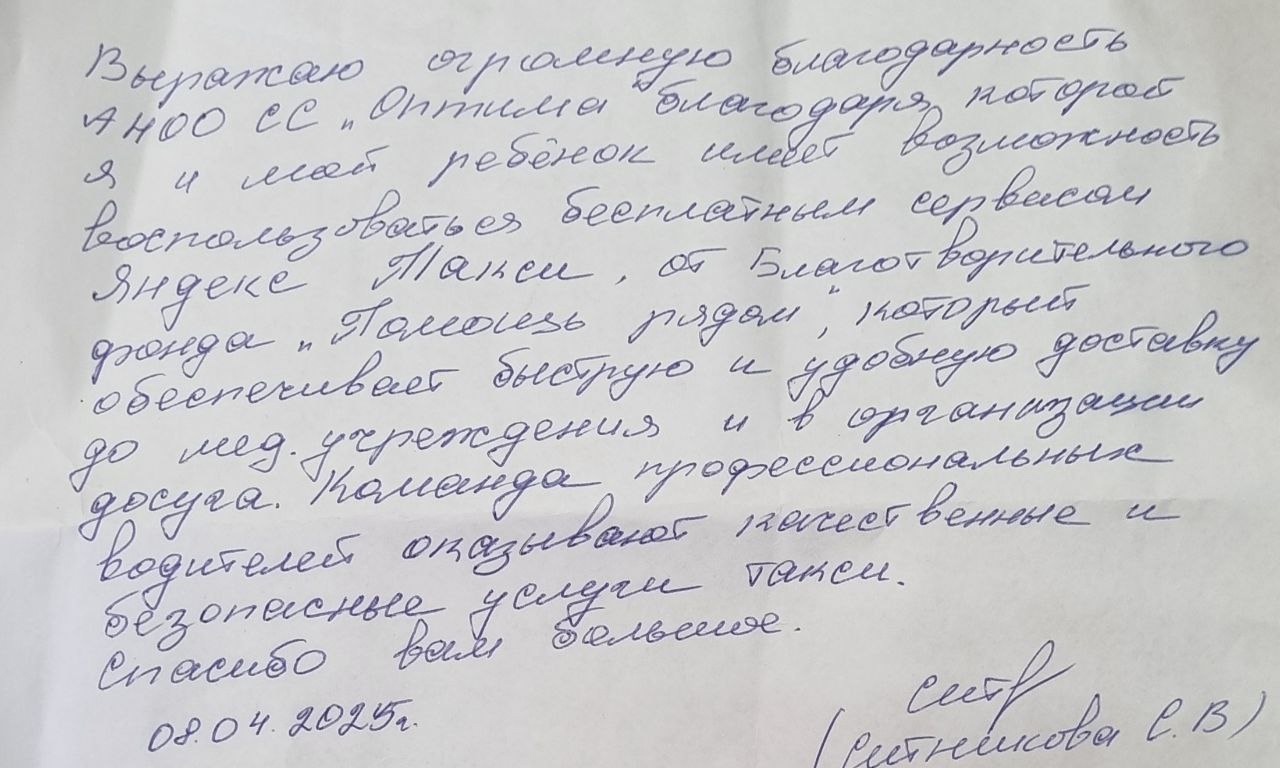 Выражаю огромную благодарность
АНОО СС „Оптима" благодаря, которой
я и мой ребёнок имеет возможность
воспользоваться бесплатным сервисом
Яндекс Такси, от Благотворительного
фонда „Помощь рядом", который
обеспечивает быструю и удобную доставку
до мед. учреждения и в организации
досуга. Команда профессиональных
водителей оказывают качественные и
безопасные услуги такси.
Спасибо вам большое.
08.04.2025г.
(Ситникова С.В)